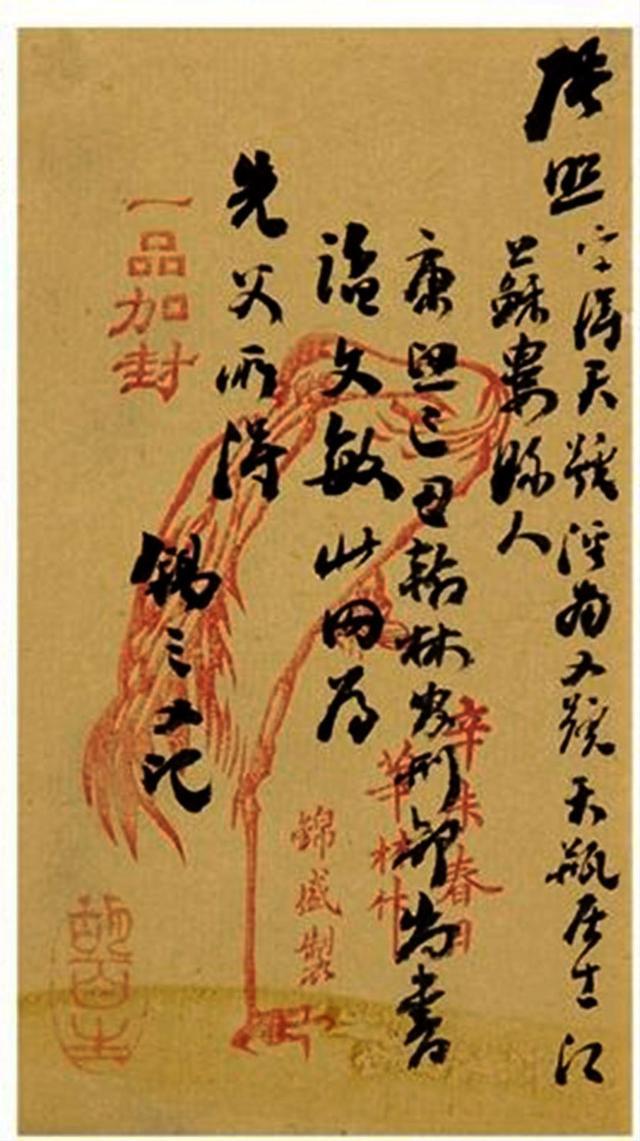 張照字得天號涇南又號天瓶居士江
蘇婁縣人
康熙己丑翰林官刑部尚書
諡文敏此冊為
先父所得
錫三又記
辛未春日
華林作
錦盛製
一品加封